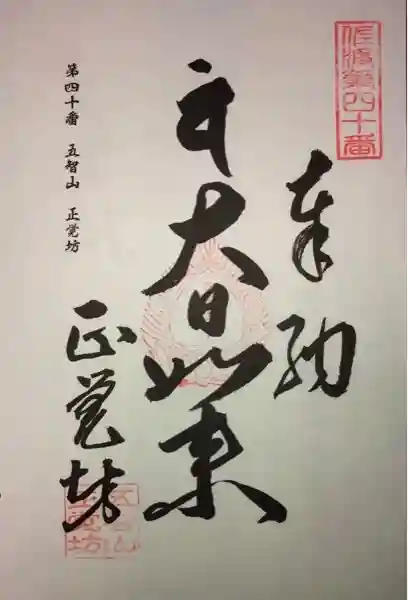 佐渡第四十番
奉納
大日如来
第四十番 五智山 正覚坊
正覚坊
五智山
正覚坊